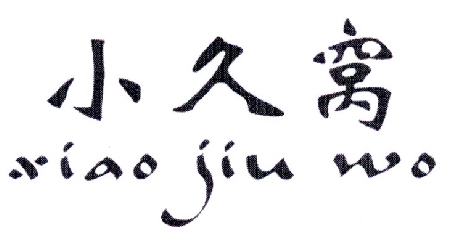 小久窝
xiao jiu wo